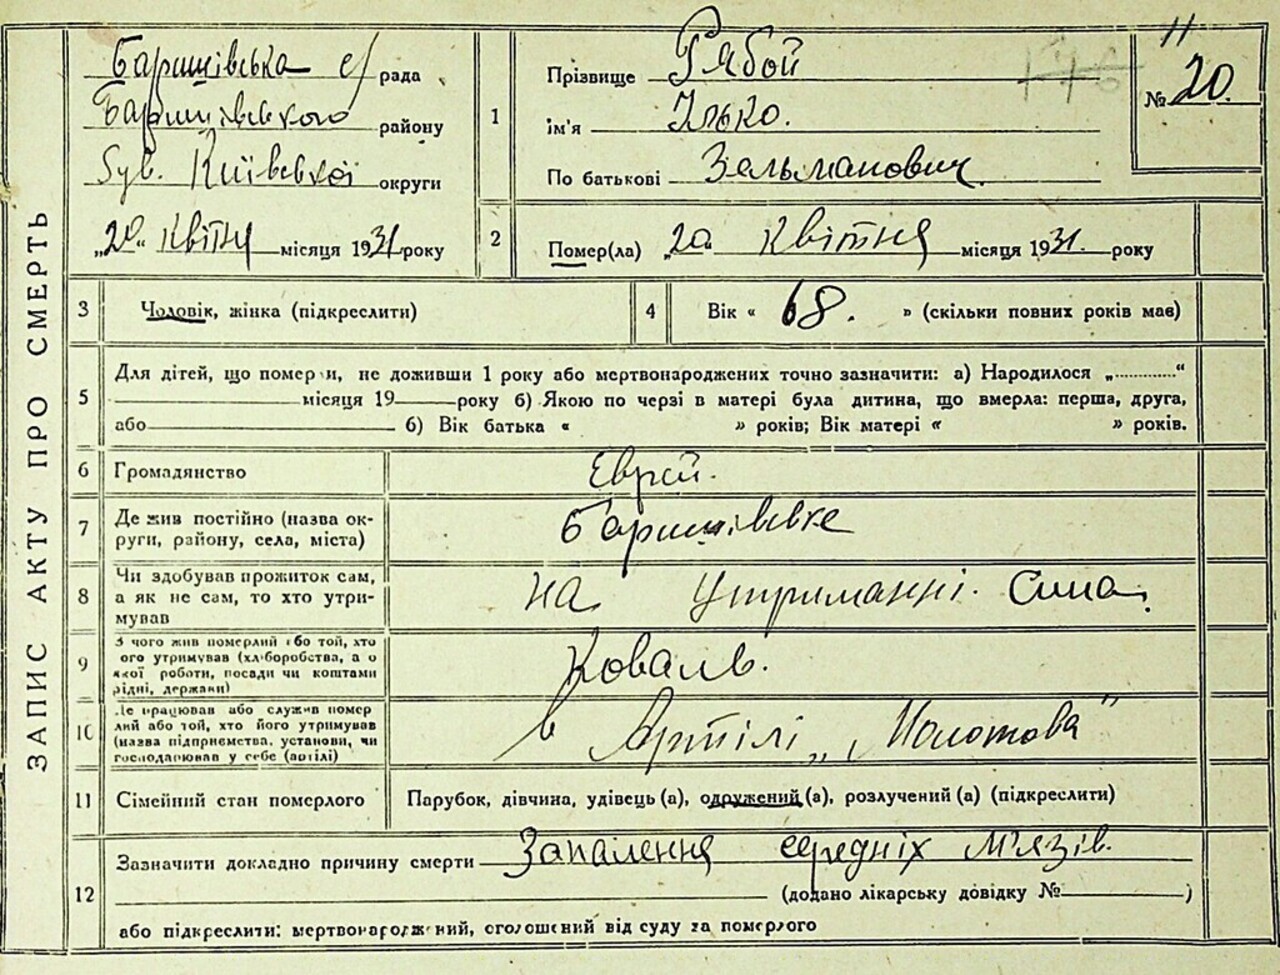 ЗАПИС АКТУ ПРО СМЕРТЬ
Баришівська с/рада
Баришівського району
був. Київської округи
„20“ квітня місяця 1931 року
1
Прізвище Рябой
ім'я Ілько.
По батькові Зельманович
11
№ 20.
2
Помер(ла) „20 квітня місяця 1931. року
3 Чоловік, жінка (підкреслити)
4 Вік « 68. » (скільки повних років має)
5
Для дітей, що померли, не доживши 1 року або мертвонароджених точно зазначити: а) Народилося „............“
місяця 19 року б) Якою по черзі в матері була дитина, що вмерла: перша, друга,
або б) Вік батька « » років; Вік матері « » років.
6 Громадянство Еврей.
7 Де жив постійно (назва ок-
руги, району, села, міста)
Баришівке
8 Чи здобував прожиток сам,
а як не сам, то хто утри-
мував
на утриманні. Сина.
9 З чого жив померлий або той, хто
ого утримував (хліборобства, а о
якої роботи, посади чи коштами
рідні, держави)
Коваль.
10 Де працював або служив помер
лий або той, хто його утримував
(назва підприємства, установи, чи
господарював у себе (артілі)
в Артілі „Молотова”
11 Сімейний стан померлого Парубок, дівчина, удівець (а), одружений (а), розлучений (а) (підкреслити)
12
Зазначити докладно причину смерти Запалення середніх м'язів.
(додано лікарську довідку № )
або підкреслити: мертвонароджений, оголошений від суду за померлого